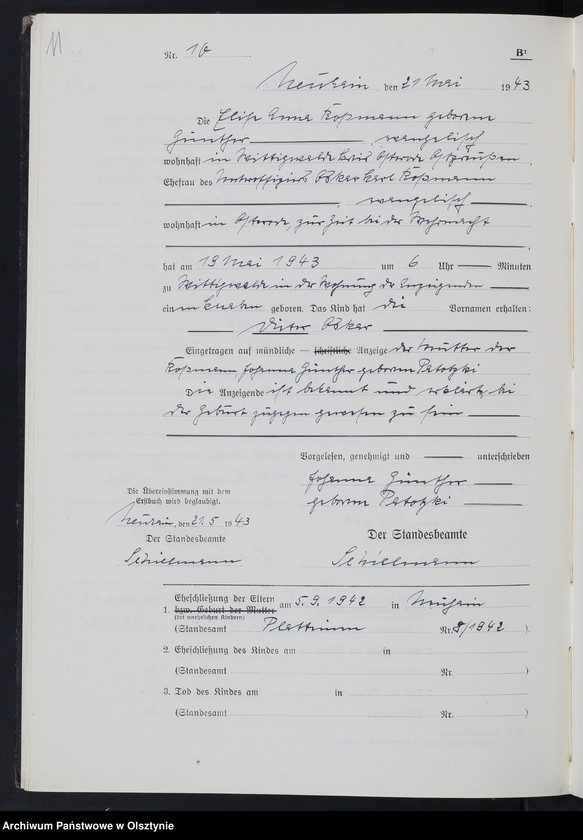 11
Nr. 10
B¹
Neuhain, den 21 Mai 1943
Die Elise Anna Koßmann geborene
Günther, evangelisch
wohnhaft in Wittigwalde Kreis Osterode Ostpreußen,
Ehefrau des Unteroffiziers Oskar Karl Koßmann
, evangelisch
wohnhaft in Osterode, zur Zeit bei der Wehrmacht
hat am 19 Mai 1943 um 6 Uhr — Minuten
zu Wittigwalde in der Wohnung der Anzeigenden
einen Knaben geboren. Das Kind hat die Vornamen erhalten:
Dieter Oskar
Eingetragen auf mündliche — schriftliche Anzeige der Mutter der
Koßmann, Johanna Günther geborene Patotzki
Die Anzeigende ist bekannt und erklärte, bei
der Geburt zugegen gewesen zu sein
Vorgelesen, genehmigt und — unterschrieben
Johanna Günther
geborene Patotzki
Die Übereinstimmung mit dem
Erstbuch wird beglaubigt.
Neuhain, den 21.5 1943
Der Standesbeamte
Der Standesbeamte
1. Eheschließung der Eltern am 5.9.1942 in Neuhain
bzw. Geburt der Mutter
(bei unehelichen Kindern)
(Standesamt Nr. 8/1942 ).
2. Eheschließung des Kindes am in
(Standesamt Nr. )
3. Tod des Kindes am in
(Standesamt Nr. )
Archiwum Państwowe w Olsztynie